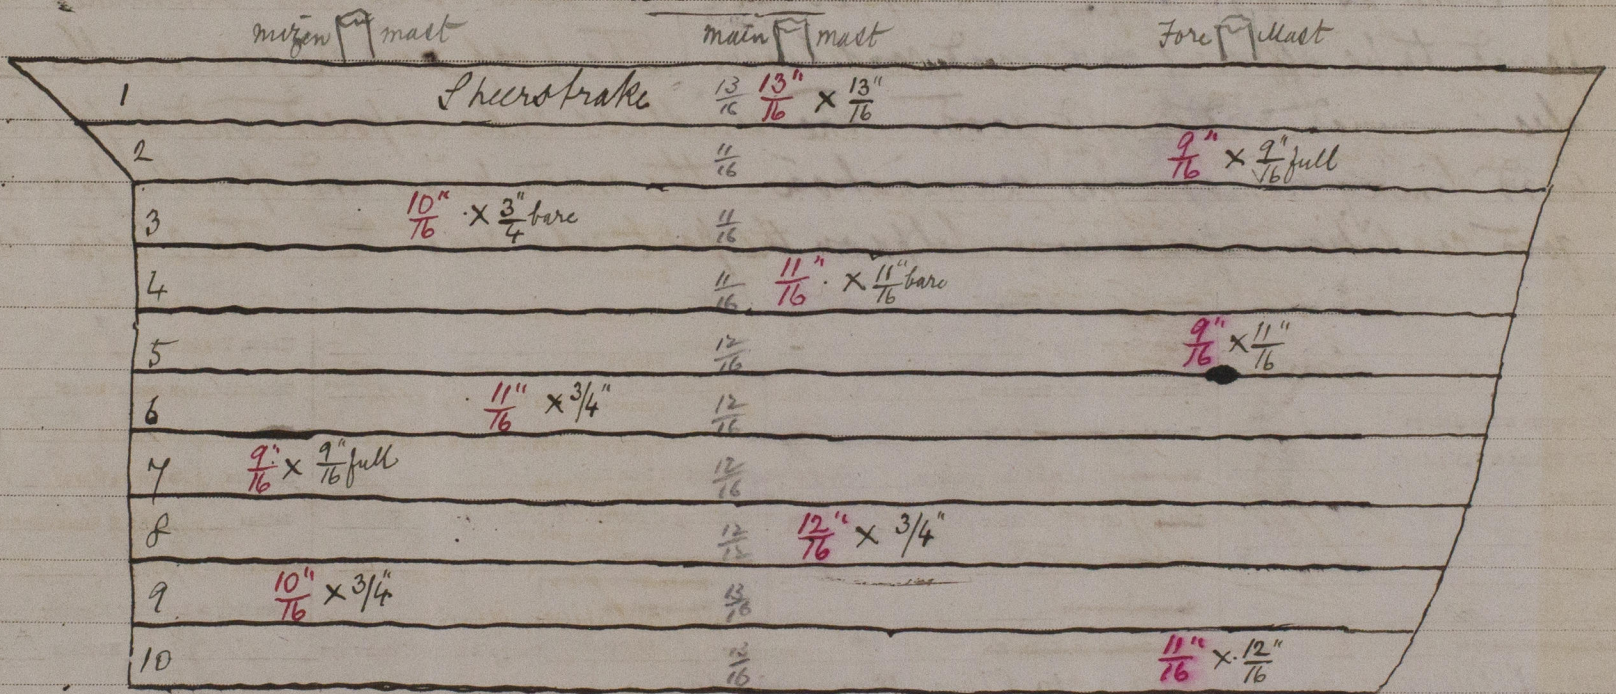 mizen mast main mast Fore Mast
1 Sheerstrake 13/16 13"/16 × 13"/16
2 11/16 9"/16 × 9"/16 full
3 10"/16 × 3"/4 bare 11/16
4 11/16 11"/16 × 11"/16 bare
5 12/16 9"/16 × 11"/16
6 11"/16 × 3/4" 12/16
7 9"/16 × 9"/16 full 12/16
8 12/12 12"/16 × 3/4"
9 10"/16 × 3/4" 13/16
10 12/16 11"/16 × 12"/16